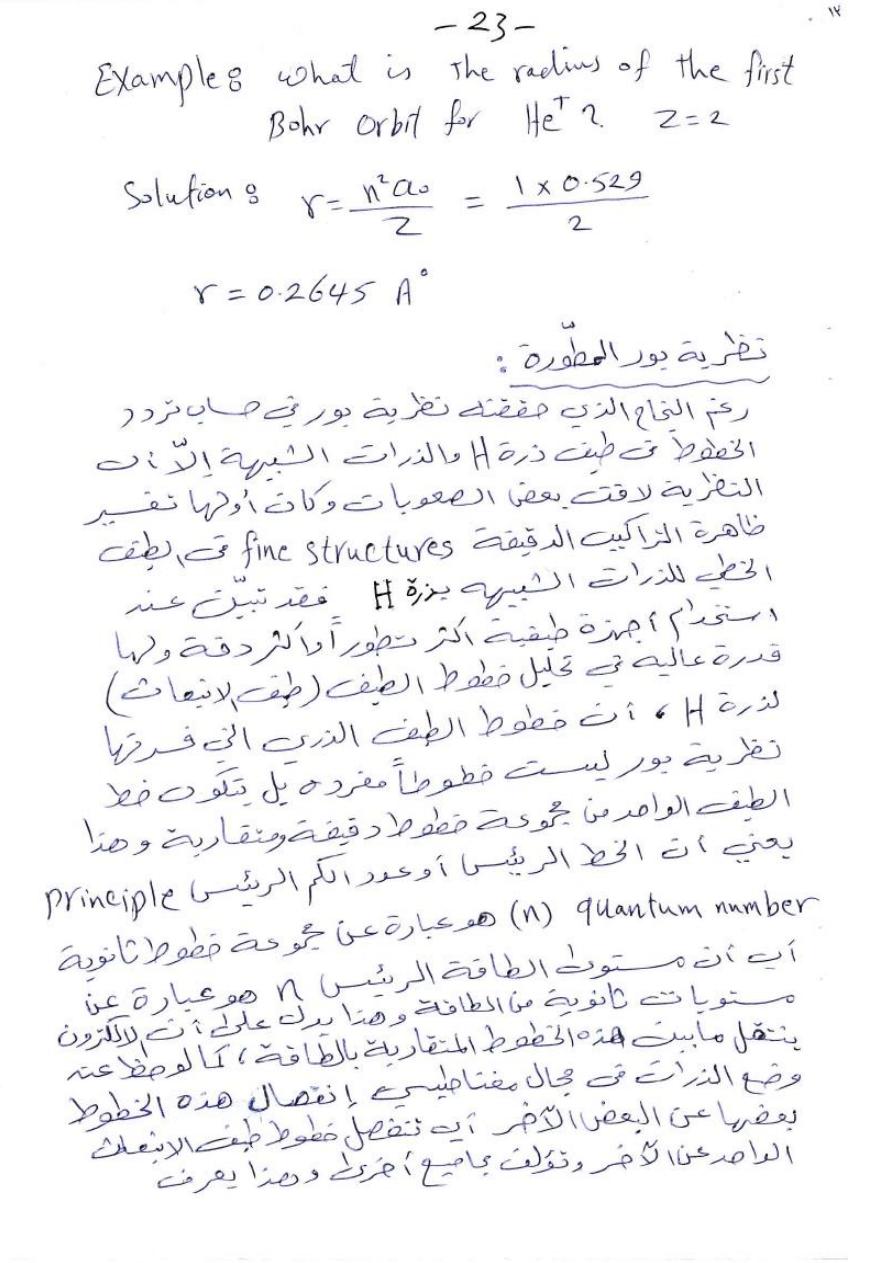 ١٢
- 23 -
Example: what is the radius of the first
Bohr orbit for He⁺? Z=2
Solution: r = n²a₀/Z = 1 x 0.529/2
r = 0.2645 A°
نظرية بور المطوّرة :
رغم النجاح الذي حققته نظرية بور في حساب تردد
الخطوط في طيف ذرة H والذرات الشبيهة إلاّ أن
النظرية لاقت بعض الصعوبات وكان أولها تفسير
ظاهرة التراكيب الدقيقة fine structures في الطيف
الخطي للذرات الشبيهه بذرة H فقد تبيّن عند
استخدام أجهزة طيفية أكثر تطوراً وأكثر دقة ولها
قدرة عاليه في تحليل خطوط الطيف (طيف الانبعاث)
لذرة H ، أن خطوط الطيف الذري التي فسرتها
نظرية بور ليست خطوطاً مفرده بل يتكون خط
الطيف الواحد من مجموعة خطوط دقيقة ومتقاربة وهذا
يعني أن الخط الرئيس أو عدد الكم الرئيس principle
quantum number (n) هو عبارة عن مجموعة خطوط ثانوية
أي أن مستوى الطاقة الرئيس n هو عبارة عن
مستويات ثانوية من الطاقة وهذا يدل على أن الالكترون
ينتقل مابين هذه الخطوط المتقاربة بالطاقة ، كما لوحظ عند
وضع الذرات في مجال مغناطيسي إنفصال هذه الخطوط
بعضها عن البعض الآخر أي تنفصل خطوط طيف الانبعاث
الواحد عن الآخر وتؤلف مجاميع أخرى وهذا يعرف